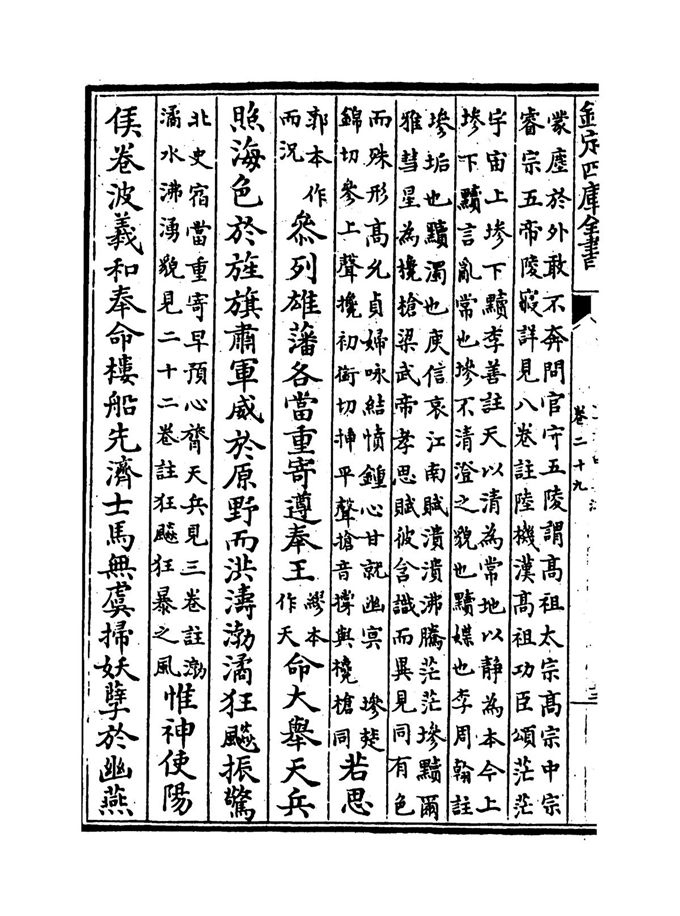 欽定四庫全書
卷二十九
蒙塵於外敢不奔問官守五陵謂髙祖太宗髙宗中宗
睿宗五帝陵寢詳見八卷註陸機漢髙祖功臣頌茫茫
宇宙上墋下黷李善註天以清為常地以静為本今上
墋下黷言亂常也墋不清澄之貌也黷媟也李周翰註
墋垢也黷濁也庾信哀江南賦潰潰沸騰茫茫墋黷爾
雅彗星為攙槍梁武帝孝思賦彼含識而異見同有色
而殊形髙允貞婦咏結憤鍾心甘就幽冥 墋楚
錦切參上聲攙初銜切挿平聲搶音撐與欃槍同
若思
郭本作
而況
叅列雄藩各當重寄遵奉王
繆本
作天
命大舉天兵
照海色於旌旗肅軍威於原野而洪濤渤潏狂飈振驚
北史宿當重寄早預心膂天兵見三卷註渤
潏水沸湧貌見二十二卷註狂飈狂暴之風
惟神使陽
侯卷波羲和奉命樓船先濟士馬無虞掃妖孽於幽燕